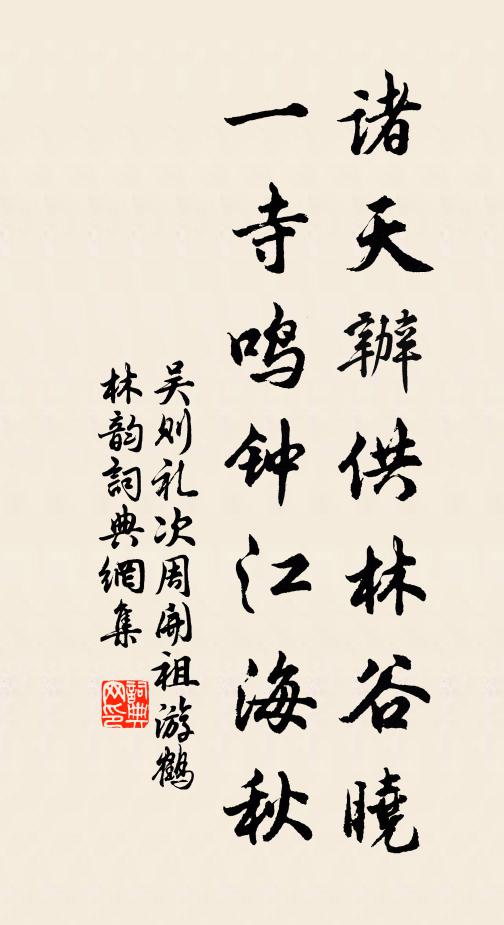 诸天辦供林谷曉
一寺鸣钟江海秋
吴则礼次周開祖游鹤
林韵詞典網集
詞典网印